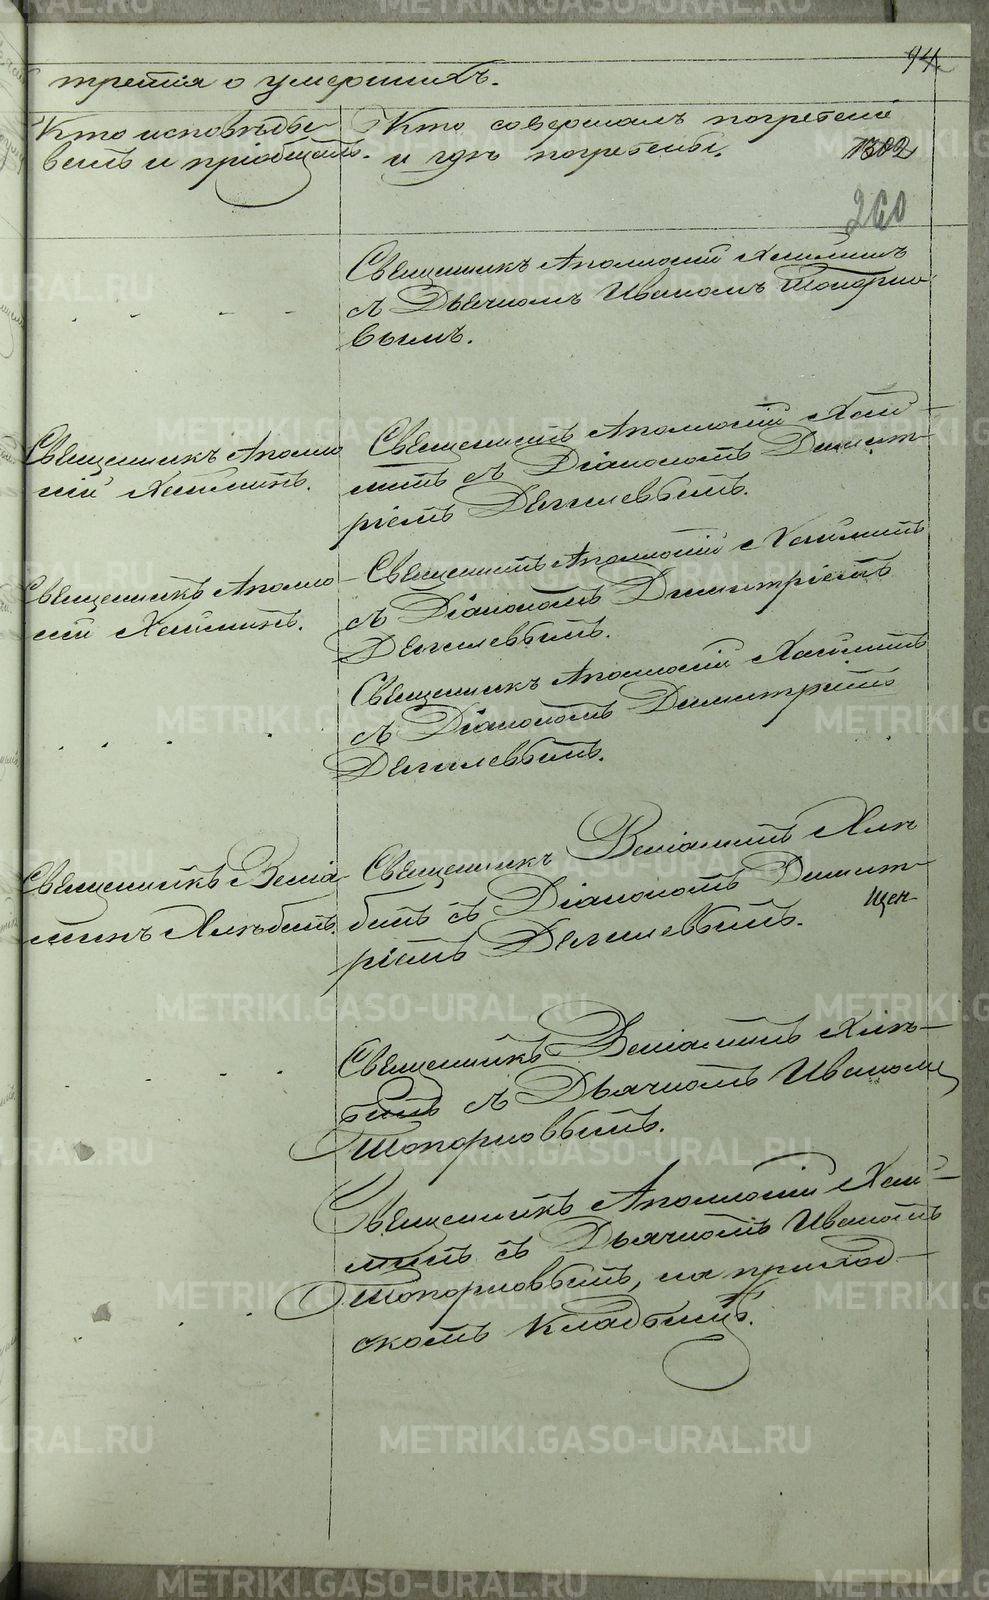 94
третія о умершихъ.
Кто исповѣды-
валъ и пріобщалъ.
Кто совершалъ погребеніе
и гдѣ погребены.
260
Священникъ Аполлоній Хайминъ
съ Дьячкомъ Иваномъ Топорко-
вымъ.
Священникъ Аполло
ній Хайминъ.
Священникъ Аполлоній Хай-
минъ съ Діакономъ Димит-
ріемъ Дягилевымъ.
Священникъ Аполло-
ній Хайминъ.
Священникъ Аполлоній Хайминъ
съ Діакономъ Димитріемъ
Дягилевымъ.
Священникъ Аполлоній Хайминъ
съ Діакономъ Димитріемъ
Дягилевымъ.
Священникъ Веніа-
минъ Хлѣбинъ.
Священникъ Веніаминъ Хлѣ
бинъ съ Діакономъ Димит
ріемъ Дягилевымъ.
Священникъ Веніаминъ Хлѣ-
бинъ съ Дьячкомъ Иваномъ
Топорковымъ.
Священникъ Аполлоній Хай-
минъ съ Дьячкомъ Иваномъ
Топорковымъ, на приход-
скомъ кладбищѣ.
METRIKI.GASO-URAL.RU